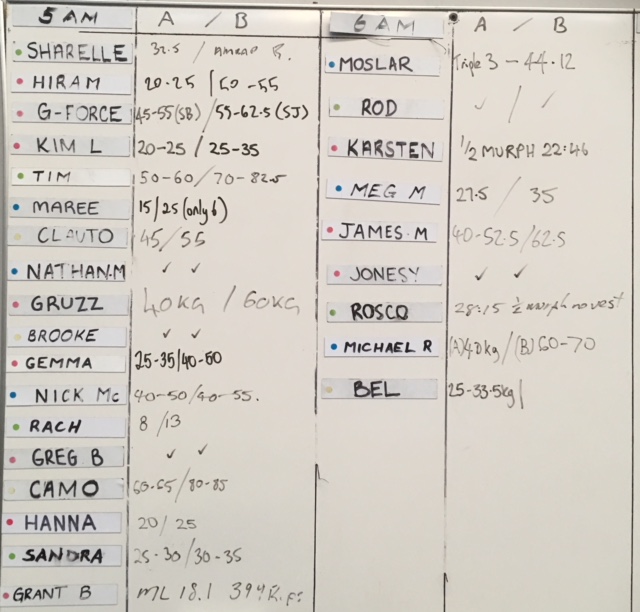 5 AM A / B
SHARELLE 32.5 / AMRAP R.
HIRAM 20-25 / 50-55
G-FORCE 45-55(SB) / 55-62.5 (SJ)
KIM L 20-25 / 25-35
TIM 50-60 / 70-82.5
MAREE 15/25 (only 6)
CLAUTO 45/55
NATHAN.M ✓ ✓
GRUZZ 40KG / 60KG
BROOKE ✓ ✓
GEMMA 25-35/40-50
NICK Mc 40-50/40-55.
RACH 8/13
GREG B ✓ ✓
CAMO 60-65/80-85
HANNA 20/25
SANDRA 25-30/30-35
GRANT B ML 18.1 394
6 AM A / B
MOSLAR Triple 3 - 44.12
ROD ✓ / ✓
KARSTEN 1/2 MURPH 22:46
MEG M 27.5 / 35
JAMES.M 40-52.5/62.5
JONESY ✓ ✓
ROSCO 28:15 1/2 murph no vest
MICHAEL R (A)40kg/(B)60-70
BEL 25-33.5kg/